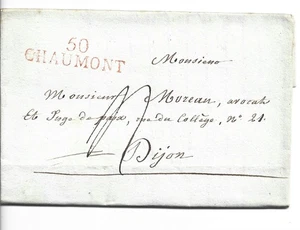 50
CHAUMONT
Monsieur
Monsieur Moreau, avocat
et Juge de paix, rue du Collége, N° 21.
Dijon